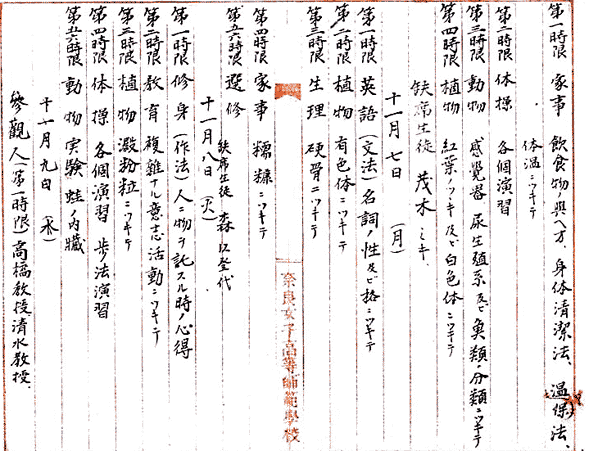 第一時限 家事 飲食物與ヘ方、身体清潔法、温保法、
体温ニツキテ
第二時限 体操 各個演習
第三時限 動物 感覺器 尿生殖系及ビ魚類ノ分類ニツキテ
第四時限 植物 紅葉ニツキ及ビ白色体ニツキテ
欠席生徒 茂木ミキ
十一月七日 (月)
第一時限 英語 (文法) 名詞ノ性及ビ格ニツキテ
第二時限 植物 有色体ニツキテ
第三時限 生理 硬骨ニツキテ
奈良女子高等師範學校
第四時限 家事 糯粳ニツキテ
第五六時限 選修
欠席生徒 森 登代
十一月八日 (火)
第一時限 修身 (作法) 人ニ物ヲ託スル時ノ心得
第二時限 教育 複雑ナル意志活動ニツキテ
第三時限 植物 澱粉粒ニツキテ
第四時限 体操 各個演習 歩法演習
第五六時限 動物 実験 蛙ノ内臓
十一月九日 (水)
參觀人 (第一時限) 高橋教授 清水教授、